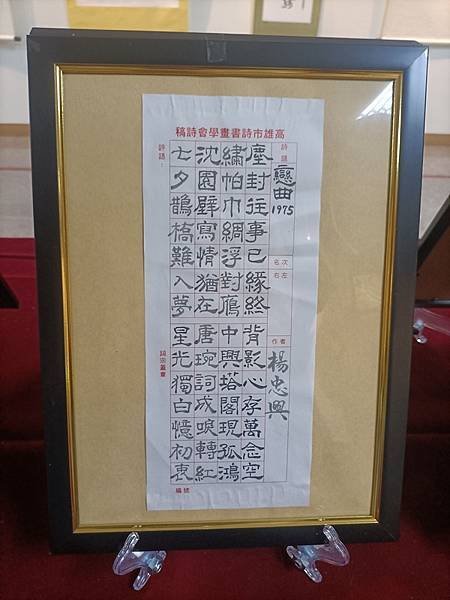 高雄市詩書畫學會詩稿
詩題
戀曲
1975
名次
右左
作者
楊忠興
塵封往事已緣終背影心存萬念空
繡帕巾綢浮對鴈中興塔閣現孤鴻
沈園壁寫情猶在唐琬詞成喚轉紅
七夕鵲橋難入夢星光獨白憶初衷
評語：
詞宗蓋章
編號